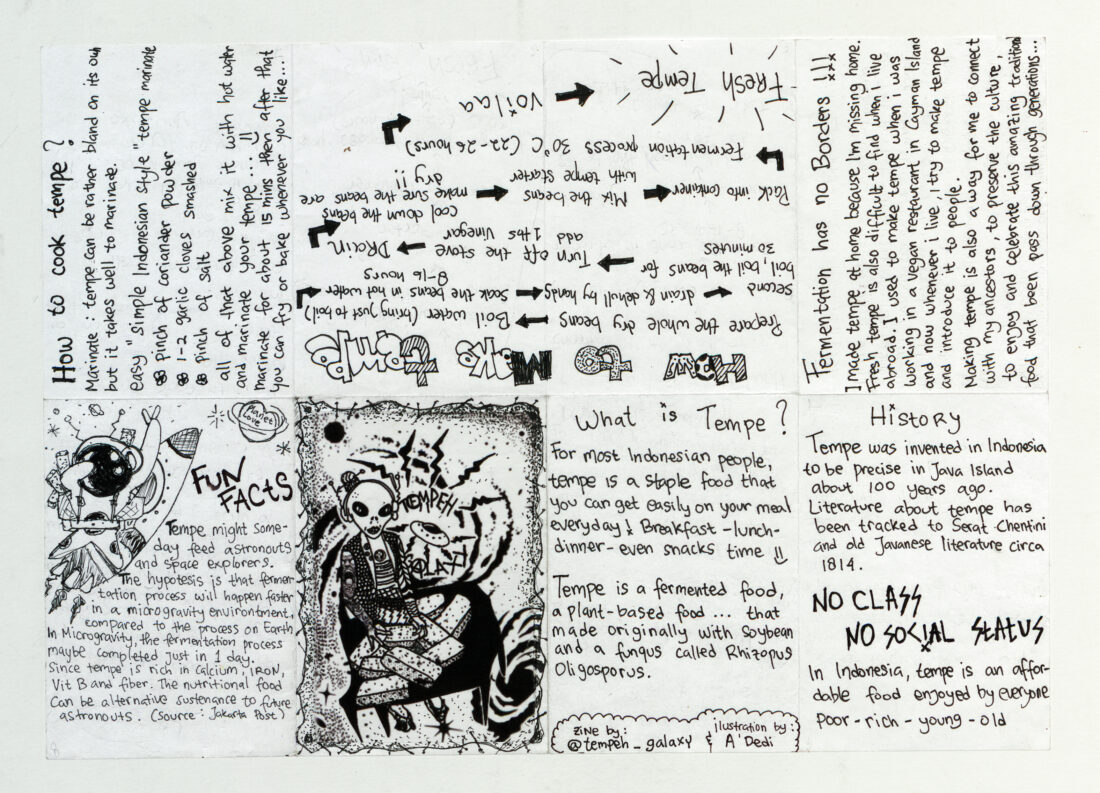 How to cook tempe?
Marinate : tempe can be rather bland on its own
but it takes well to marinade.
easy "simple Indonesian style" tempe marinate
pinch of coriander powder
1-2 garlic cloves smashed
pinch of salt
all of that above mix it with hot water
and marinate your tempe...
marinate for about 15 mins then after that
you can fry or bake whenever you like...
How to Make Tempe
Prepare the whole dry beans
Boil water (bring just to boil)
Soak the beans in hot water
8-16 hours
drain & dehull by hands
second
boil, boil the beans for
30 minutes
Turn off the stove
add 1 tbs vinegar
DRain
cool down the beans
make sure the beans are
dry !!
Mix the beans
with tempe starter
Pack into container
Fermentation process 30°C (22-26 hours)
Voilaa
Fresh Tempe
Fermentation has no Borders !!!
I made tempe at home because I'm missing home.
Fresh tempe is also difficult to find when I live
abroad. I used to make tempe when i was
working in a vegan restaurant in Cayman Island
and now whenever i live, i try to make tempe
and introduce it to people.
Making tempe is also a way for me to connect
with my ancestors, to preserve the culture,
to enjoy and celebrate this amazing tradition
food that been pass down through generations...
Planet Love
FUN
FACTS
Tempe might some-
day feed astronouts
and space explorers.
The hypotesis is that fermen-
tation process will happen faster
in a microgravity environtment,
compared to the process on Earth
In Microgravity, the fermentation process
maybe completed just in 1 day.
Since tempe is rich in Calcium, iRON,
Vit B and fiber. The nutritional food
Can be alternative sustenance to future
astronouts. (Source : Jakarta Post)
8
TEMPEH
GALAXY
What is Tempe?
For most Indonesian people,
tempe is a staple food that
you can get easily on your meal
everyday! Breakfast - lunch-
dinner - even snacks time
Tempe is a fermented food,
a plant-based food ... that
made originally with Soybean
and a fungus called Rhizopus
Oligosporus.
ZiNe by :
@tempeh_galaxy &
ilustration by :
A'Dedi
History
Tempe was invented in Indonesia
to be precise in Java Island
about 100 years ago.
Literature about tempe has
been tracked to Serat Chentini
and old Javanese literature circa
1814.
NO CLASS
NO SOCIAL STATUS
In Indonesia, tempe is an affor-
dable food enjoyed by everyone
poor - rich - young - old